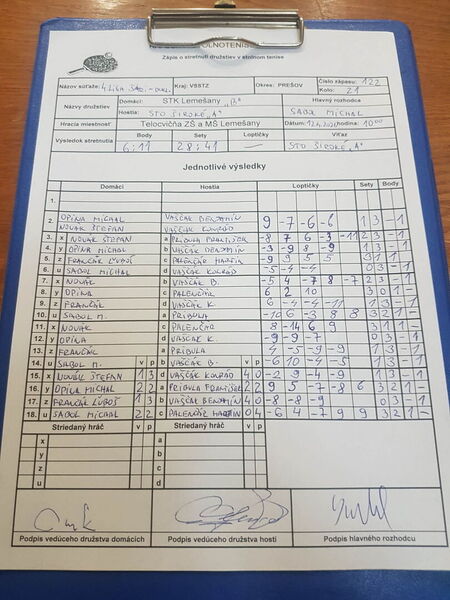 OLNOTENIS
Zápis o stretnutí družstiev v stolnom tenise
Názov súťaže: 4.LIGA SAB.-DUKL. Kraj: VSSTZ Okres: PREŠOV Číslo zápasu: 122
Kolo: 21
Názvy družstiev Domáci: STK Lemešany "B" Hlavný rozhodca
Hostia: STO ŠIROKÉ "A" SABOL MICHAL
Hracia miestnosť Telocvičňa ZŠ a MŠ Lemešany Dátum: hodina: 10:00
Výsledok stretnutia Body Sety Loptičky Víťaz
6:11 28:41 STO ŠIROKÉ "A"
Jednotlivé výsledky
Domáci Hostia Loptičky Sety Body
1.
2. OPINA MICHAL VAŠČÁK BENJAMÍN 9 -7 -6 -6 1 3 - 1
NOVÁK ŠTEFAN VAŠČÁK KONRÁD
3. x NOVÁK ŠTEFAN a PRIBULA FRANTIŠEK -8 7 6 -3 -11 2 3 - 1
4. y OPINA MICHAL b VAŠČÁK BENJAMÍN -3 -8 9 -9 1 3 - 1
5. z FRANCÁK ĽUBOŠ c PALENČÁR MARTIN -9 9 5 5 3 1 1 -
6. u SABOL MICHAL d VAŠČÁK KONRÁD -5 -4 -4 0 3 - 1
7. x NOVÁK b VAŠČÁK B. -5 4 -7 8 -7 2 3 - 1
8. y OPINA c PALENČÁR 6 2 10 3 0 1 -
9. z FRANCÁK d VAŠČÁK K. 6 -4 -4 -11 1 3 - 1
10. u SABOL M. a PRIBULA -10 6 -3 8 8 3 2 1 -
11. x NOVÁK c PALENČÁR 8 -14 6 9 3 1 1 -
12. y OPINA d VAŠČÁK K. -9 -9 -7 0 3 - 1
13. z FRANCÁK a PRIBULA 4 -5 -9 -9 1 3 - 1
14. u SABOL M. v p b VAŠČÁK B. v p -6 10 -4 -5 1 3 - 1
15. x NOVÁK ŠTEFAN 1 3 d VAŠČÁK KONRÁD 4 0 -2 9 -4 -9 1 3 - 1
16. y OPINA MICHAL 2 2 a PRIBULA FRANTIŠEK 2 2 9 5 -7 -8 6 3 2 1 -
17. z FRANCÁK ĽUBOŠ 1 3 b VAŠČÁK BENJAMÍN 4 0 -8 -8 -9 0 3 - 1
18. u SABOL MICHAL 2 2 c PALENČÁR MARTIN 0 4 -6 4 -7 9 9 3 2 1 -
Striedaný hráč v p Striedaný hráč v p
x a
y b
z c
u d
Podpis vedúceho družstva domácich Podpis vedúceho družstva hostí Podpis hlavného rozhodcu